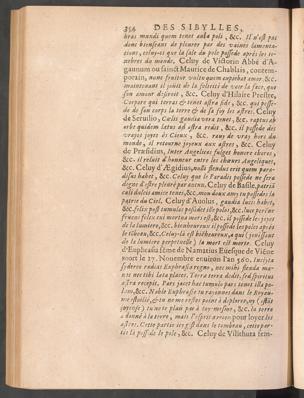 356 DES SIBYLLES,
bras mundi quem tenet aula poli, &c. Il n'est pas
donc bienseant de pleurer par des vaines lamenta-
tions, celuy-cy que la sale du pole possede apres les te-
nebres du monde. Celuy de Victorin Abbé d'A-
gaunum ou sainct Maurice de Chablais, contem-
porain, nunc fruitur vultu quem cupiebat amor &c.
maintenant il jouït de la felicité de voir la face, que
son amour desiroit, &c. Celuy d'Hilaire Prestre,
Corpore qui terras & tenet astra fide, &c. qui posse-
de de son corps la terre & de sa foy les astres. Celuy
de Seruilio, Cælis gaudia vera tenet, &c. raptus ab
orbe quidem latus ad astra redis, &c. il possede des
vrayes joyes és Cieux, &c. ravy de vray hors du
monde, il retourne joyeux aux astres, &c. Celuy
de Præsidius, Inter Angelicos fulget honore choros,
&c. il reluit d'honneur entre les chœurs Angeliques,
&c. Celuy d'Ægidius, nolli flendus erit quem para-
disus habet, &c. Celuy que le Paradis possede ne sera
digne d'estre pleuré par aucun. Celuy de Basile, patriā
cæli dulcis amice tenet, &c. mon doux amy tu possedes la
patrie du Ciel. Celuy d'Auolus, gaudia lucis habet,
&c. felix post tumulos possidet ille polos, &c. luce perēne
fruens felix cui mortua mors est, &c. il possede les joyes
de la lumiere, &c. bienheureux il possede les poles après
le tōbeau, &c. Celuy-là est biēheureux, à qui (jouïssant
de la lumiere perpetuelle) la mort est morte. Celuy
d'Euphrasiā 5ème de Namatius Euesque de Viēne
mort le 17. Nouembre enuiron l'an 560. Inclyta
sydereo radias Euphrasia regno, nec mihi flenda ma-
nes nec tibi læta places. Terra terra dedit, sed spiritus
astra recepit. Pars jacet hæc tumulo pars tenet illa po-
lum, &c. Noble Euphrasie tu rayonnes dans le Royau-
me estoillé, & tu ne me restes point à deplorer, ny (estāt
joyeuse) tu ne te plais pas à toy-mesme, &c. la terre
a donné à la terre, mais l'esprit a receu pour loyer les
astres. Cette partie icy gist dans le tombeau, cette par-
tie là possede le pole, &c. Celuy de Vilithuta fem-